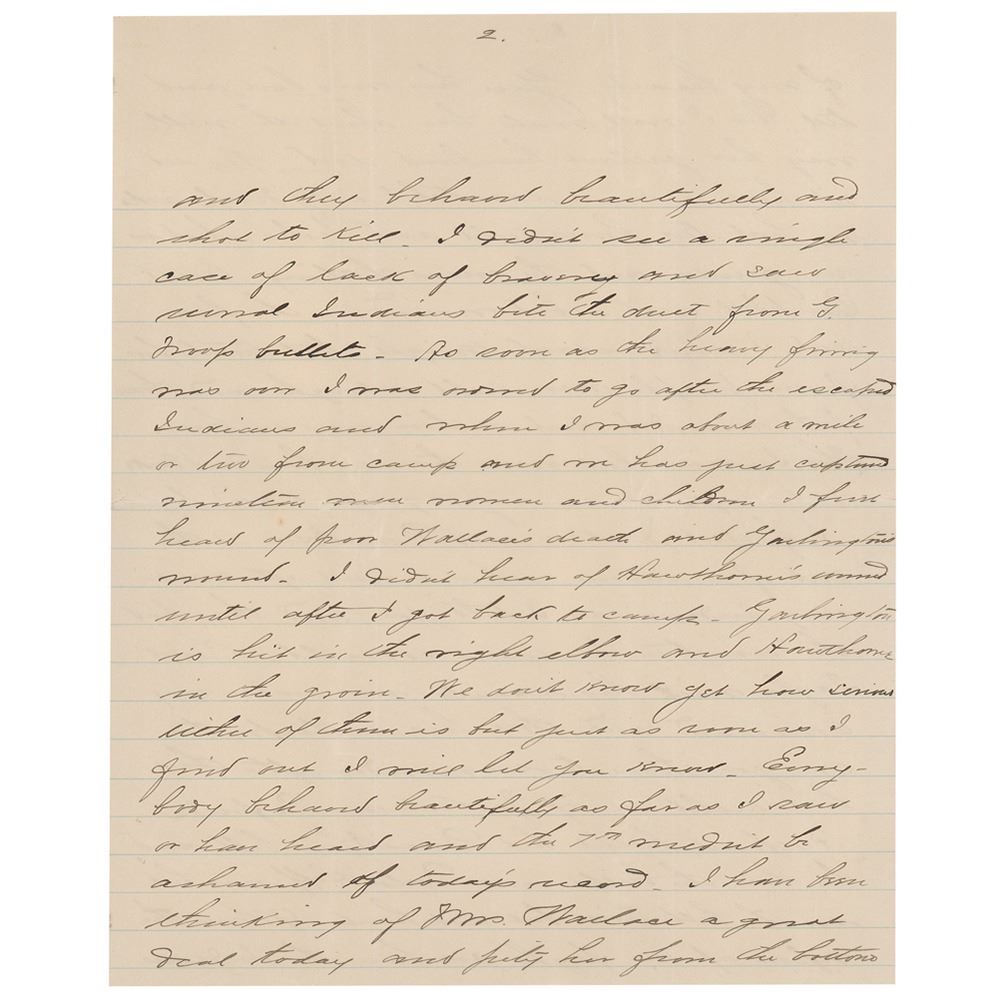 2.
and they behaved beautifully and
shot to kill. I didn't see a single
case of lack of bravery and saw
several Indians bite the dust from G.
Troop bullets. As soon as the heavy firing
was over I was ordered to go after the escaped
Indians and when I was about a mile
or two from camp and we has just captured
nineteen men women and children I first
heard of poor Wallace's death and Garlington's
wound. I didn't hear of Hawthorne's wound
until after I got back to camp. Garlington
is hit in the right elbow and Hawthorne
in the groin. We don't know yet how serious
either of them is but just as soon as I
find out I will let you know. Every-
body behaved beautifully as far as I saw
or have heard and the 7th needn't be
ashamed of today's record. I have been
thinking of Mrs. Wallace a great
deal today and pity her from the bottom